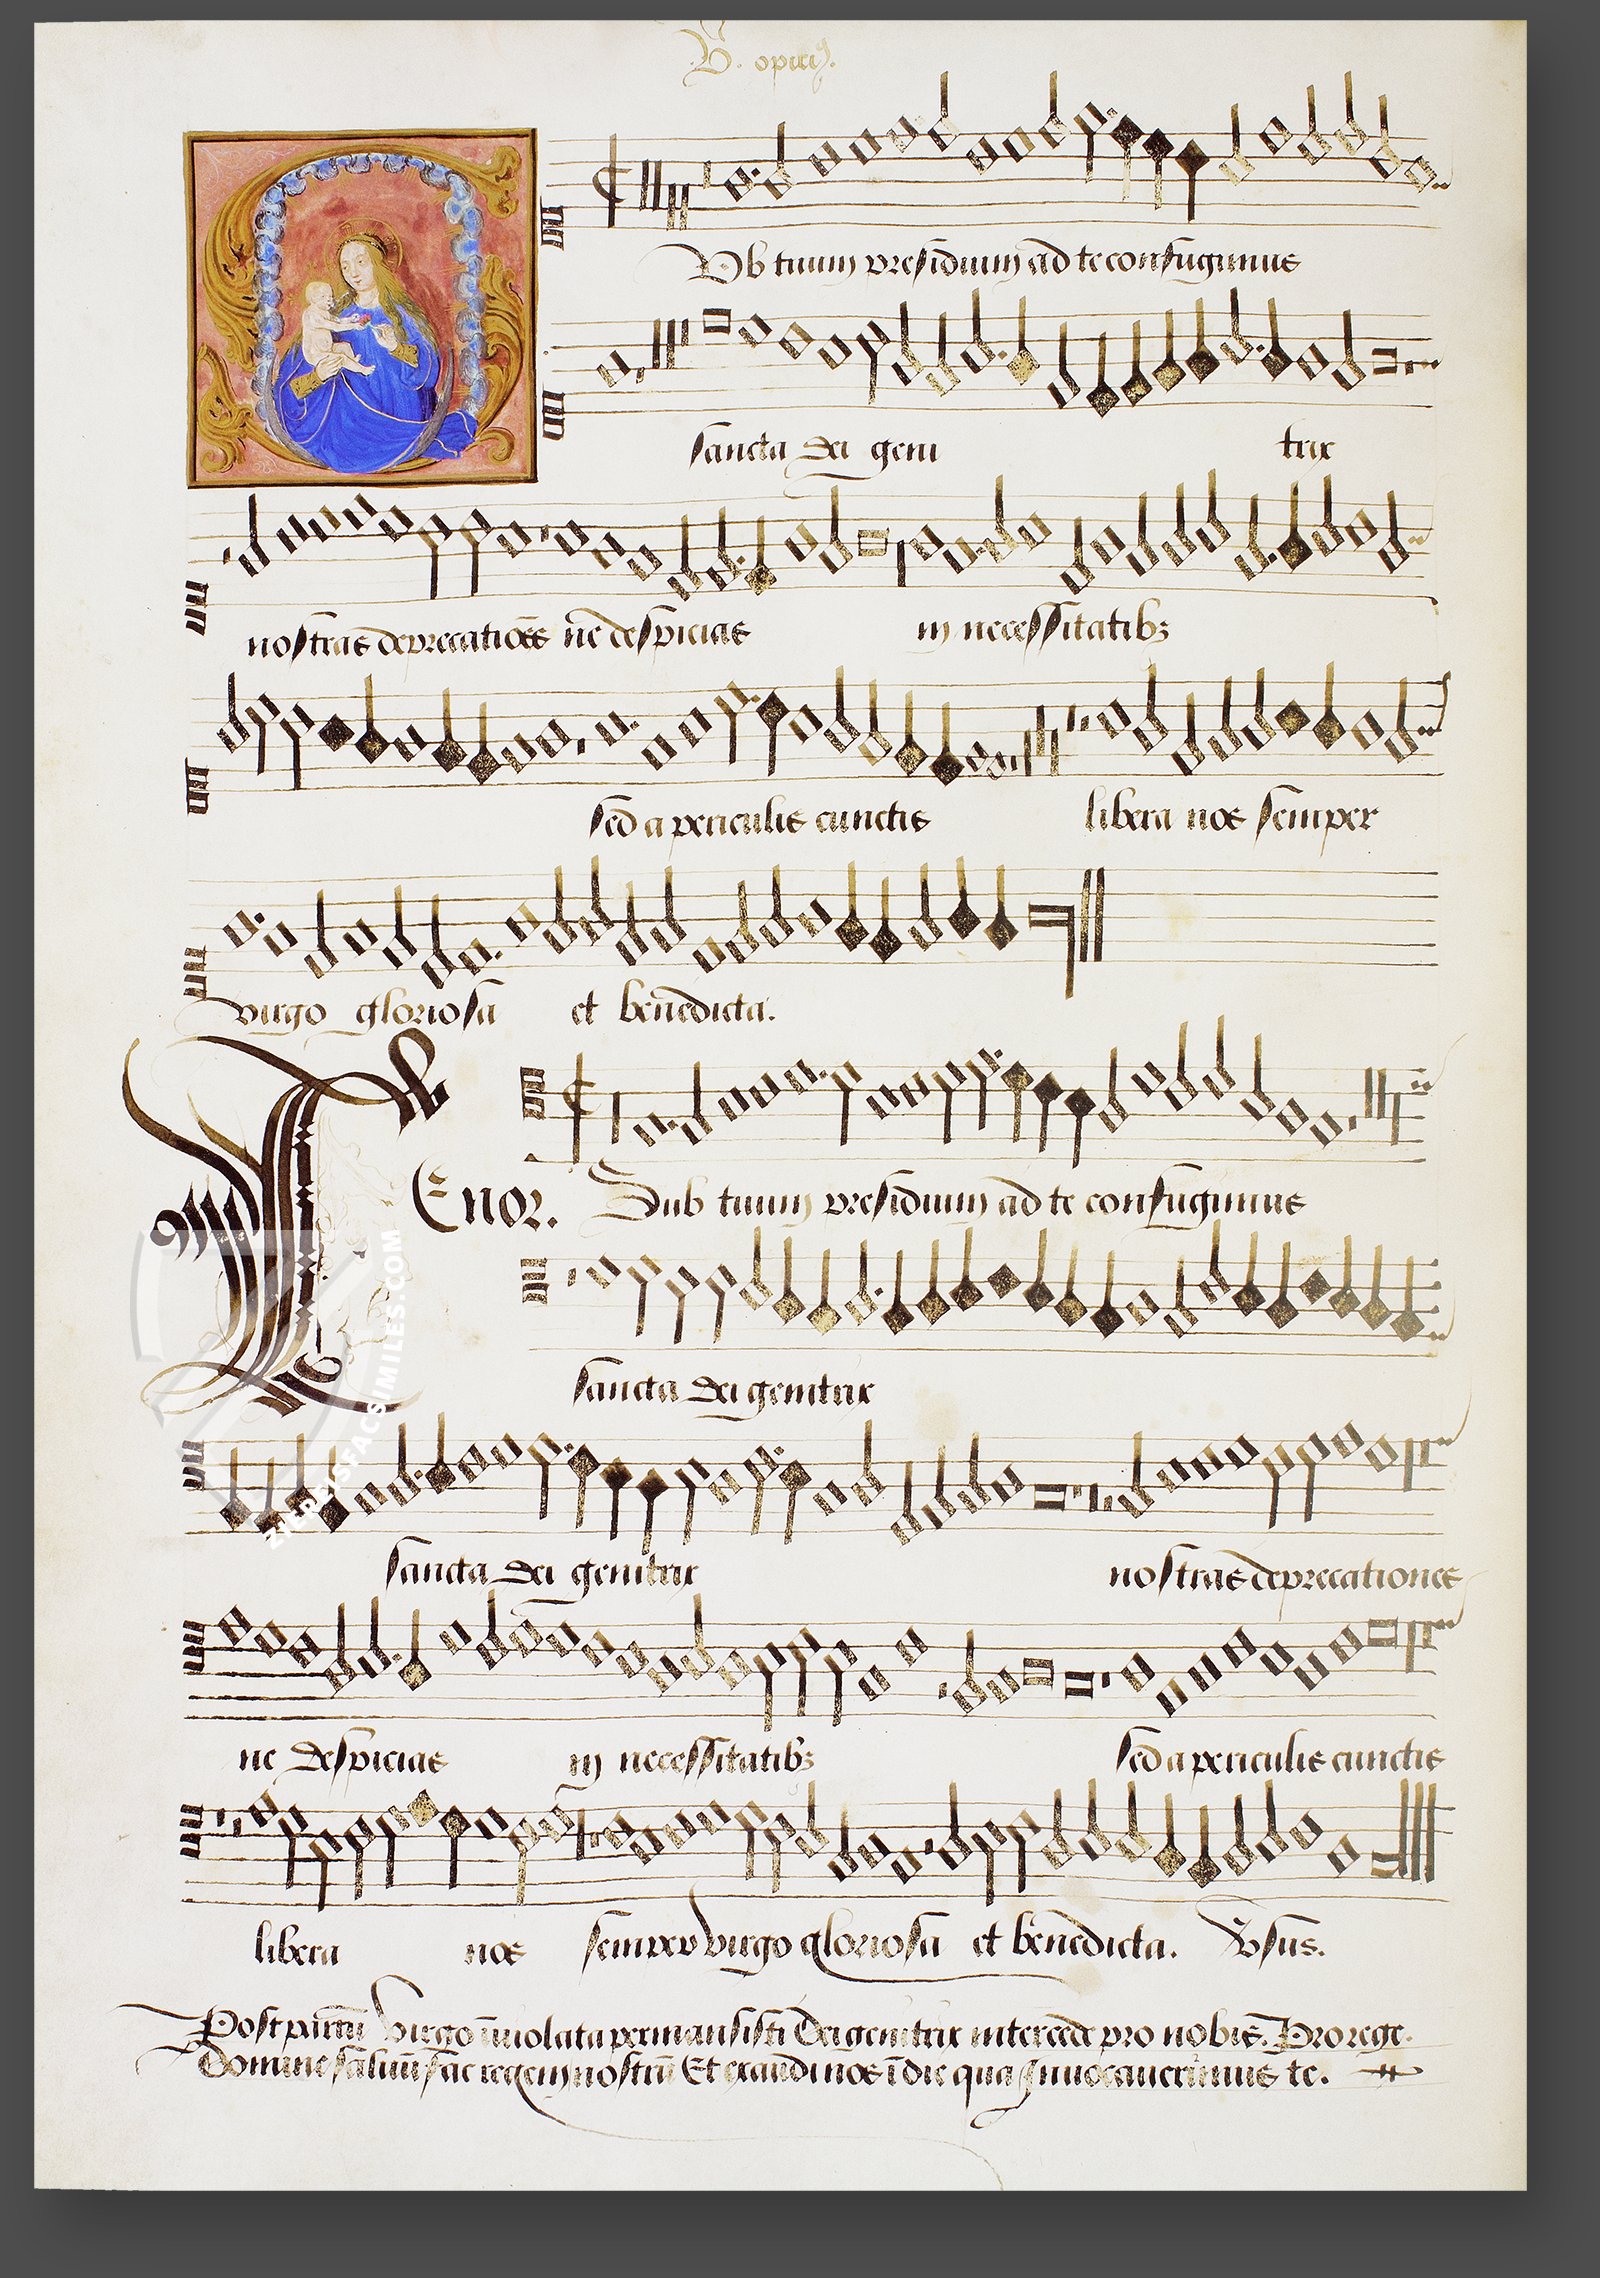 B. opitiꝰ.
Vb tuum presidium ad te confugimus
sancta dei geni trix
nostras deprecatiões ne despicias in necessitatibꝫ
sed a periculis cunctis libera nos semper
virgo gloriosa et benedicta.
Tenor. Sub tuum presidium ad te confugimus
sancta dei genitrix
sancta dei genitrix nostras deprecationes
ne despicias in necessitatibꝫ sed a periculis cunctis
libera nos semper virgo gloriosa et benedicta. Vsus.
Post partũ virgo ĩuiolata permansisti Dei genitrix intercede pro nobis. Pro rege.
Domine saluũ fac regem nostrũ Et exaudi nos ĩ die qua Inuocauerimus te.
ZIEREISFACSIMILES.COM